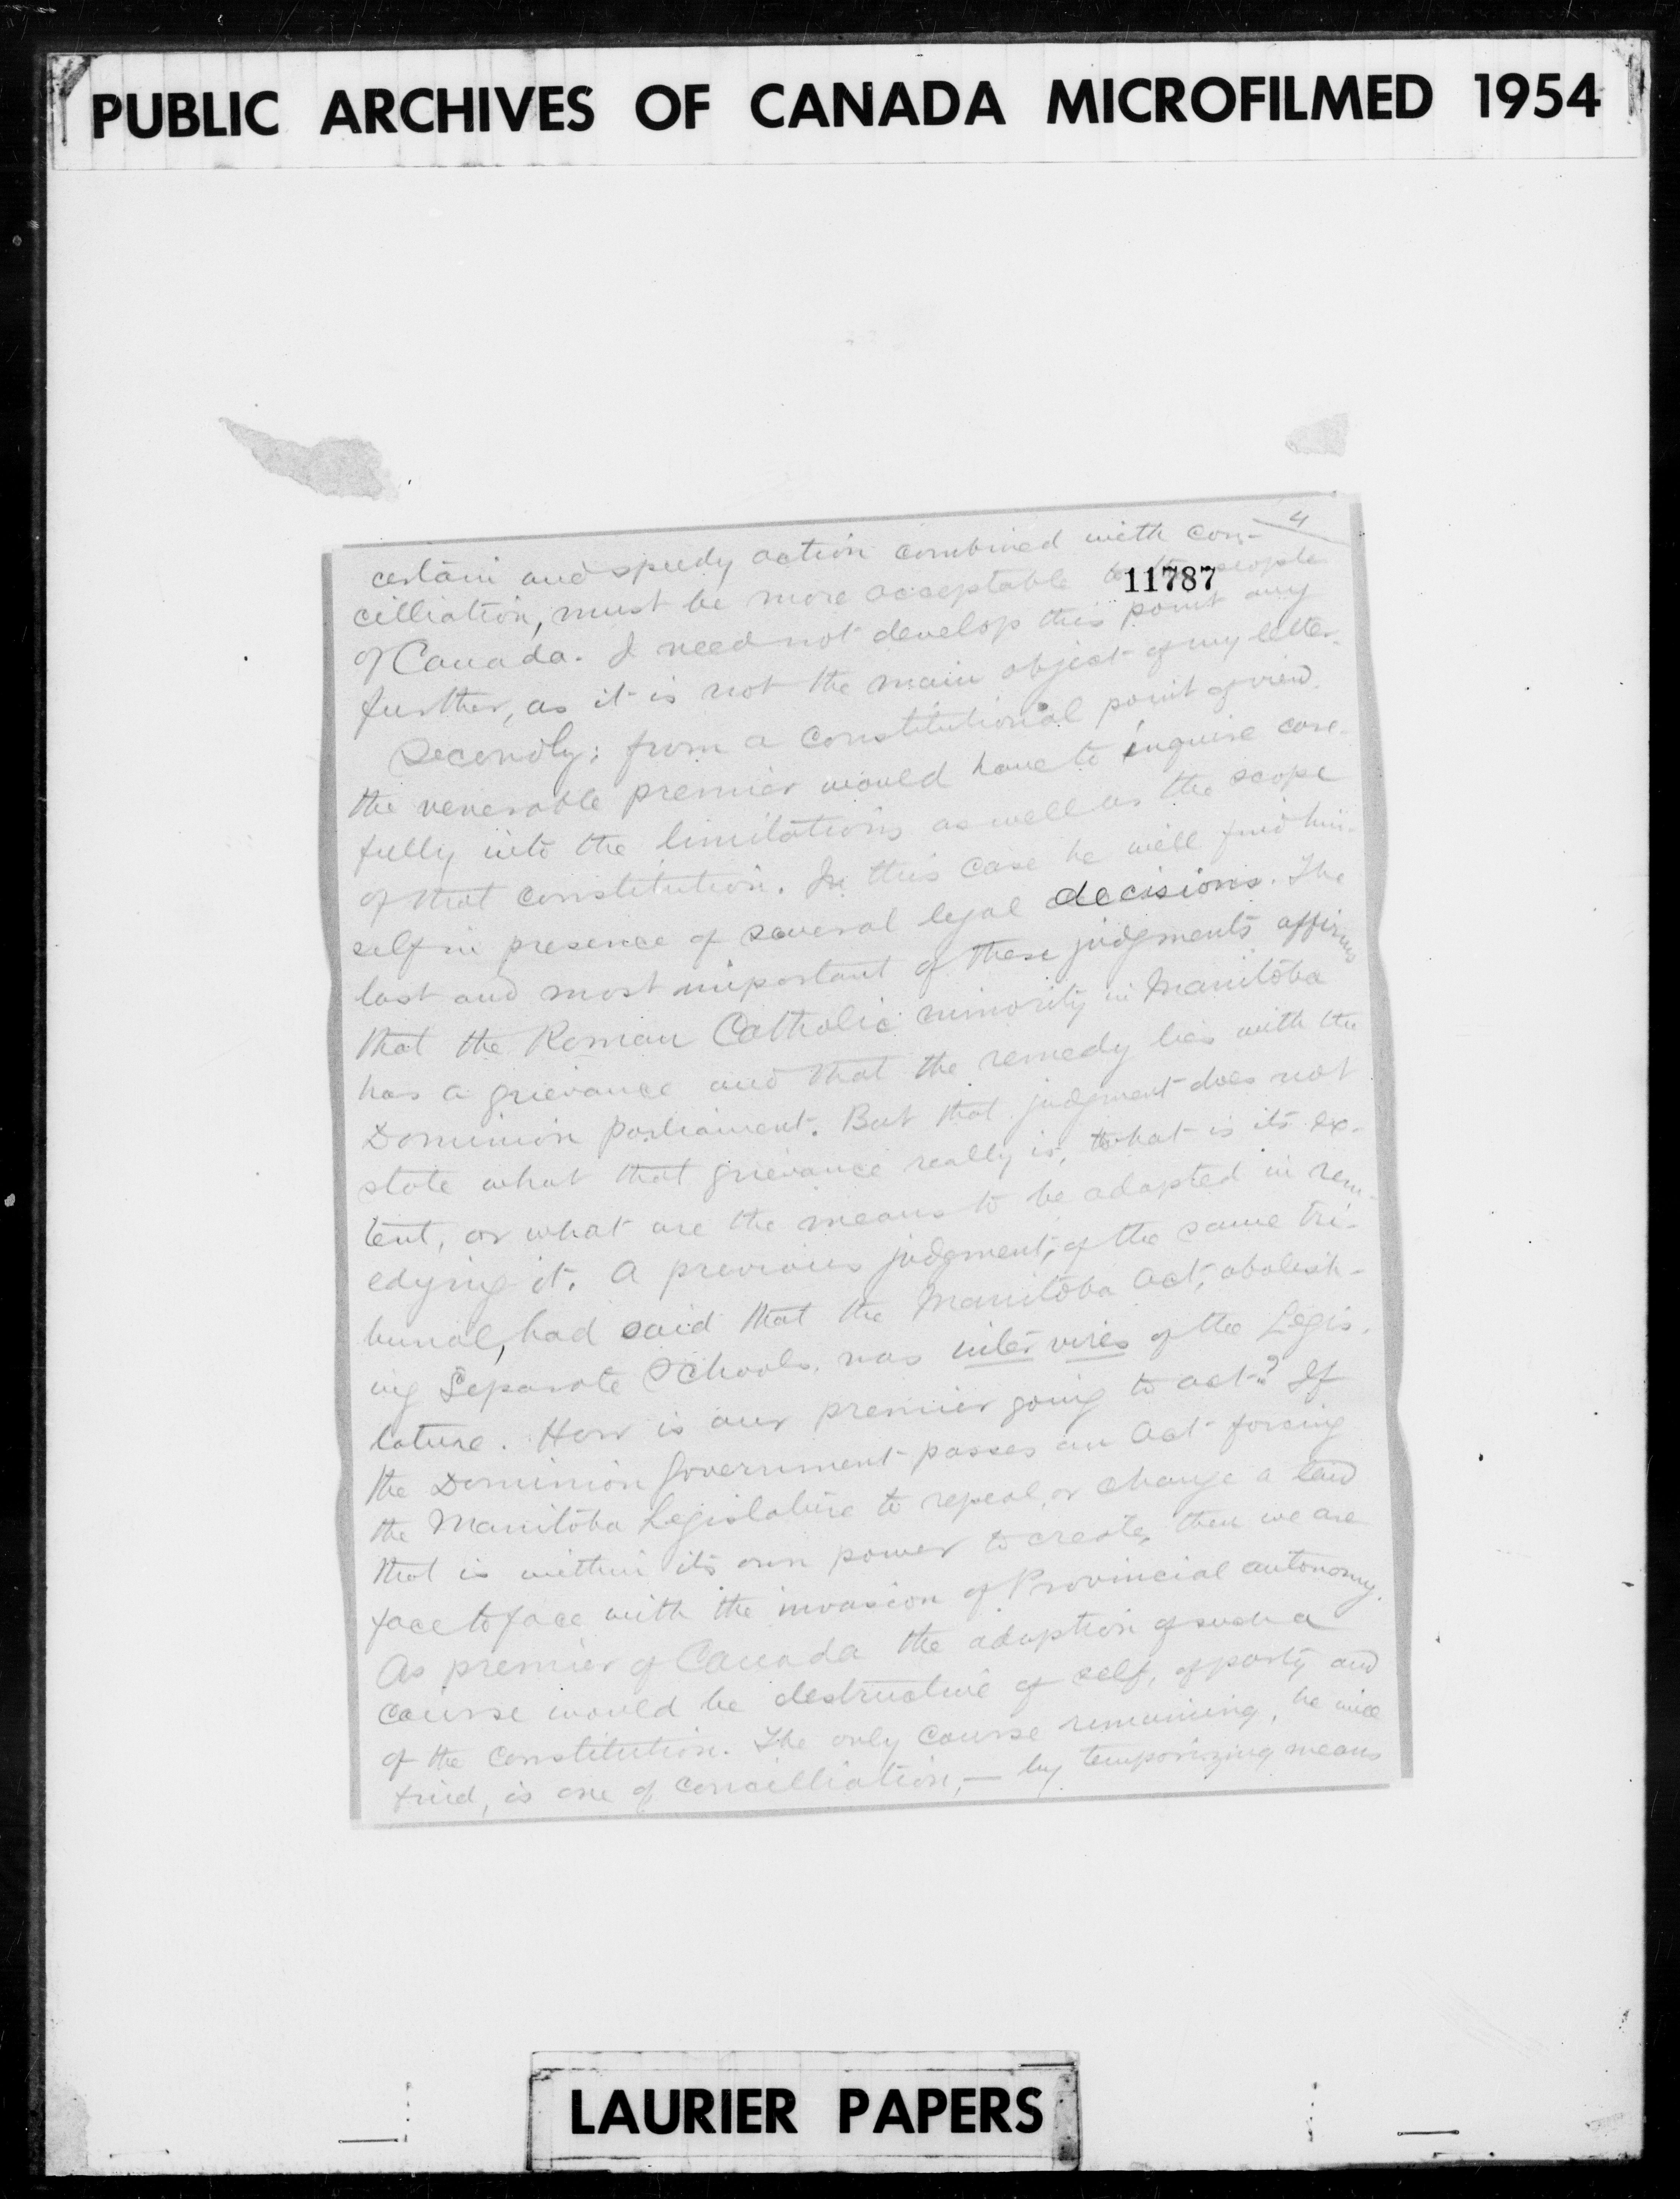 PUBLIC ARCHIVES OF CANADA MICROFILMED 1954
4
certain and speedy action combined with con-
11787
cilliation, must be more acceptable to the people
of Canada. I need not develop this point any
further, as it is not the main object of my letter.
Secondly: from a constitutional point of view.
the venerable premier would have to inquire care-
fully into the limitations as well as the scope
of that constitution. In this case he will find him-
self in presence of several legal decisions. The
last and most important of these judgments affirms
that the Roman Catholic minority in Manitoba
has a grievance and that the remedy lies with the
Dominion parliament. But that judgment does not
state what that grievance really is, what is its ex-
tent, or what are the means to be adopted in rem-
edying it. A previous judgment, of the same tri-
bunal, had said that the Manitoba Act, abolish-
ing Separate Schools, was inter vires of the Legis-
lature. How is our premier going to act? If
the Dominion Government passes an Act forcing
the Manitoba Legislature to repeal, or change a law
that is within its own power to create, then we are
face to face with the invasion of Provincial autonomy.
As premier of Canada the adoption of such a
course would be destructive of self, of party and
of the constitution. The only course remaining, he will
find, is one of concilliation, — by temporizing means
LAURIER PAPERS